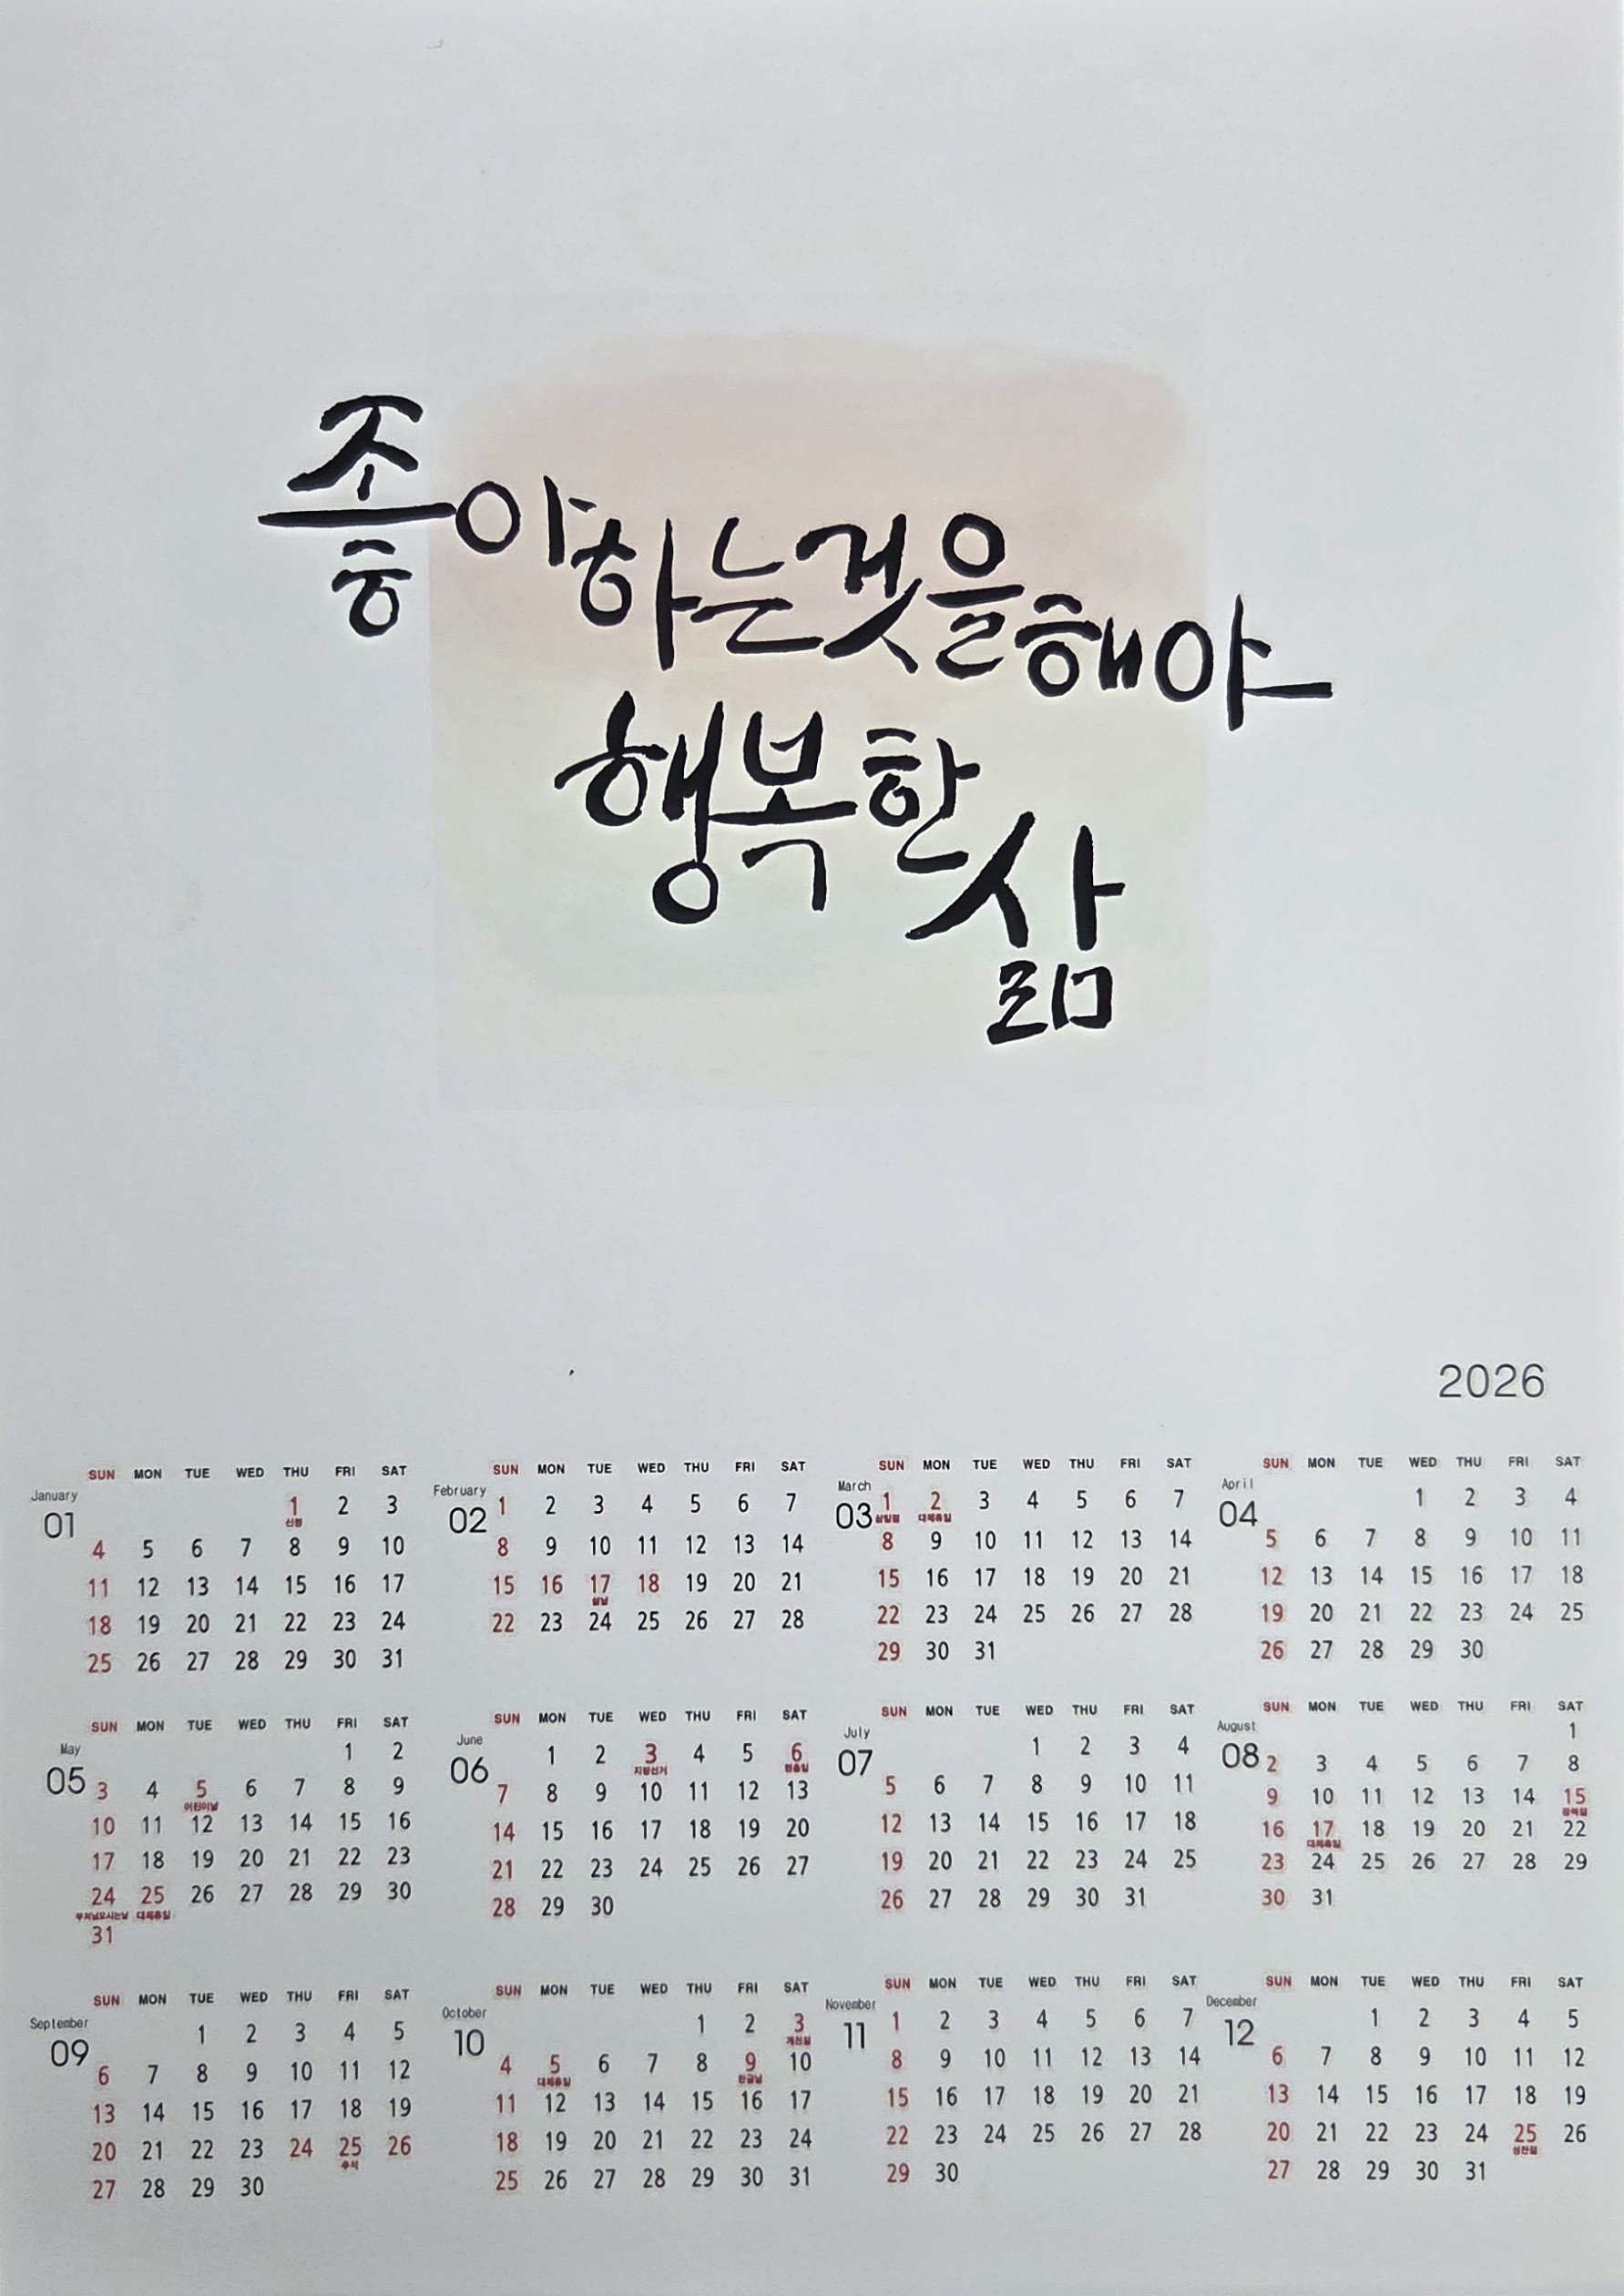 좋아하는것을해야
행복한
삶
2026
January
01
SUN MON TUE WED THU FRI SAT
1 2 3
신정
4 5 6 7 8 9 10
11 12 13 14 15 16 17
18 19 20 21 22 23 24
25 26 27 28 29 30 31
February
02
SUN MON TUE WED THU FRI SAT
1 2 3 4 5 6 7
8 9 10 11 12 13 14
15 16 17 18 19 20 21
설날
22 23 24 25 26 27 28
March
03
SUN MON TUE WED THU FRI SAT
1 2 3 4 5 6 7
삼일절 대체휴일
8 9 10 11 12 13 14
15 16 17 18 19 20 21
22 23 24 25 26 27 28
29 30 31
April
04
SUN MON TUE WED THU FRI SAT
1 2 3 4
5 6 7 8 9 10 11
12 13 14 15 16 17 18
19 20 21 22 23 24 25
26 27 28 29 30
May
05
SUN MON TUE WED THU FRI SAT
1 2
3 4 5 6 7 8 9
어린이날
10 11 12 13 14 15 16
17 18 19 20 21 22 23
24 25 26 27 28 29 30
부처님오시는날 대체휴일
31
June
06
SUN MON TUE WED THU FRI SAT
1 2 3 4 5 6
지방선거 현충일
7 8 9 10 11 12 13
14 15 16 17 18 19 20
21 22 23 24 25 26 27
28 29 30
July
07
SUN MON TUE WED THU FRI SAT
1 2 3 4
5 6 7 8 9 10 11
12 13 14 15 16 17 18
19 20 21 22 23 24 25
26 27 28 29 30 31
August
08
SUN MON TUE WED THU FRI SAT
1
2 3 4 5 6 7 8
9 10 11 12 13 14 15
광복절
16 17 18 19 20 21 22
대체휴일
23 24 25 26 27 28 29
30 31
September
09
SUN MON TUE WED THU FRI SAT
1 2 3 4 5
6 7 8 9 10 11 12
13 14 15 16 17 18 19
20 21 22 23 24 25 26
추석
27 28 29 30
October
10
SUN MON TUE WED THU FRI SAT
1 2 3
개천절
4 5 6 7 8 9 10
대체휴일 한글날
11 12 13 14 15 16 17
18 19 20 21 22 23 24
25 26 27 28 29 30 31
November
11
SUN MON TUE WED THU FRI SAT
1 2 3 4 5 6 7
8 9 10 11 12 13 14
15 16 17 18 19 20 21
22 23 24 25 26 27 28
29 30
December
12
SUN MON TUE WED THU FRI SAT
1 2 3 4 5
6 7 8 9 10 11 12
13 14 15 16 17 18 19
20 21 22 23 24 25 26
성탄절
27 28 29 30 31